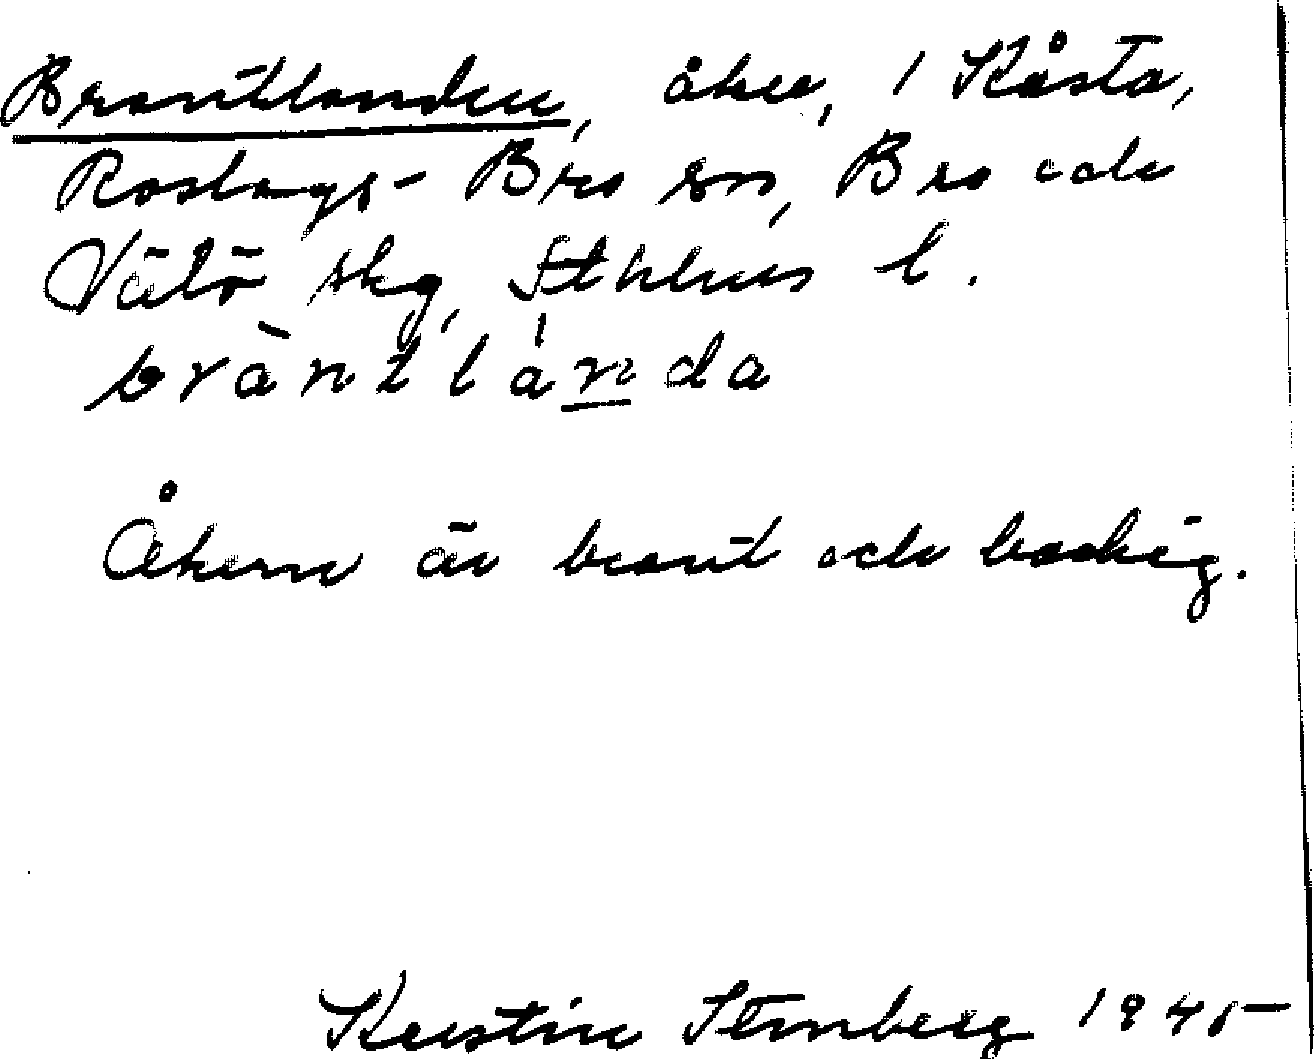 Brantlanden, åker, 1 Kåsta,
Roslags-Bro sn, Bro och
Vätö skg, Sthlms l.
bràntlánda
Åkern är brant och backig.
Kerstin Sternberg 1945